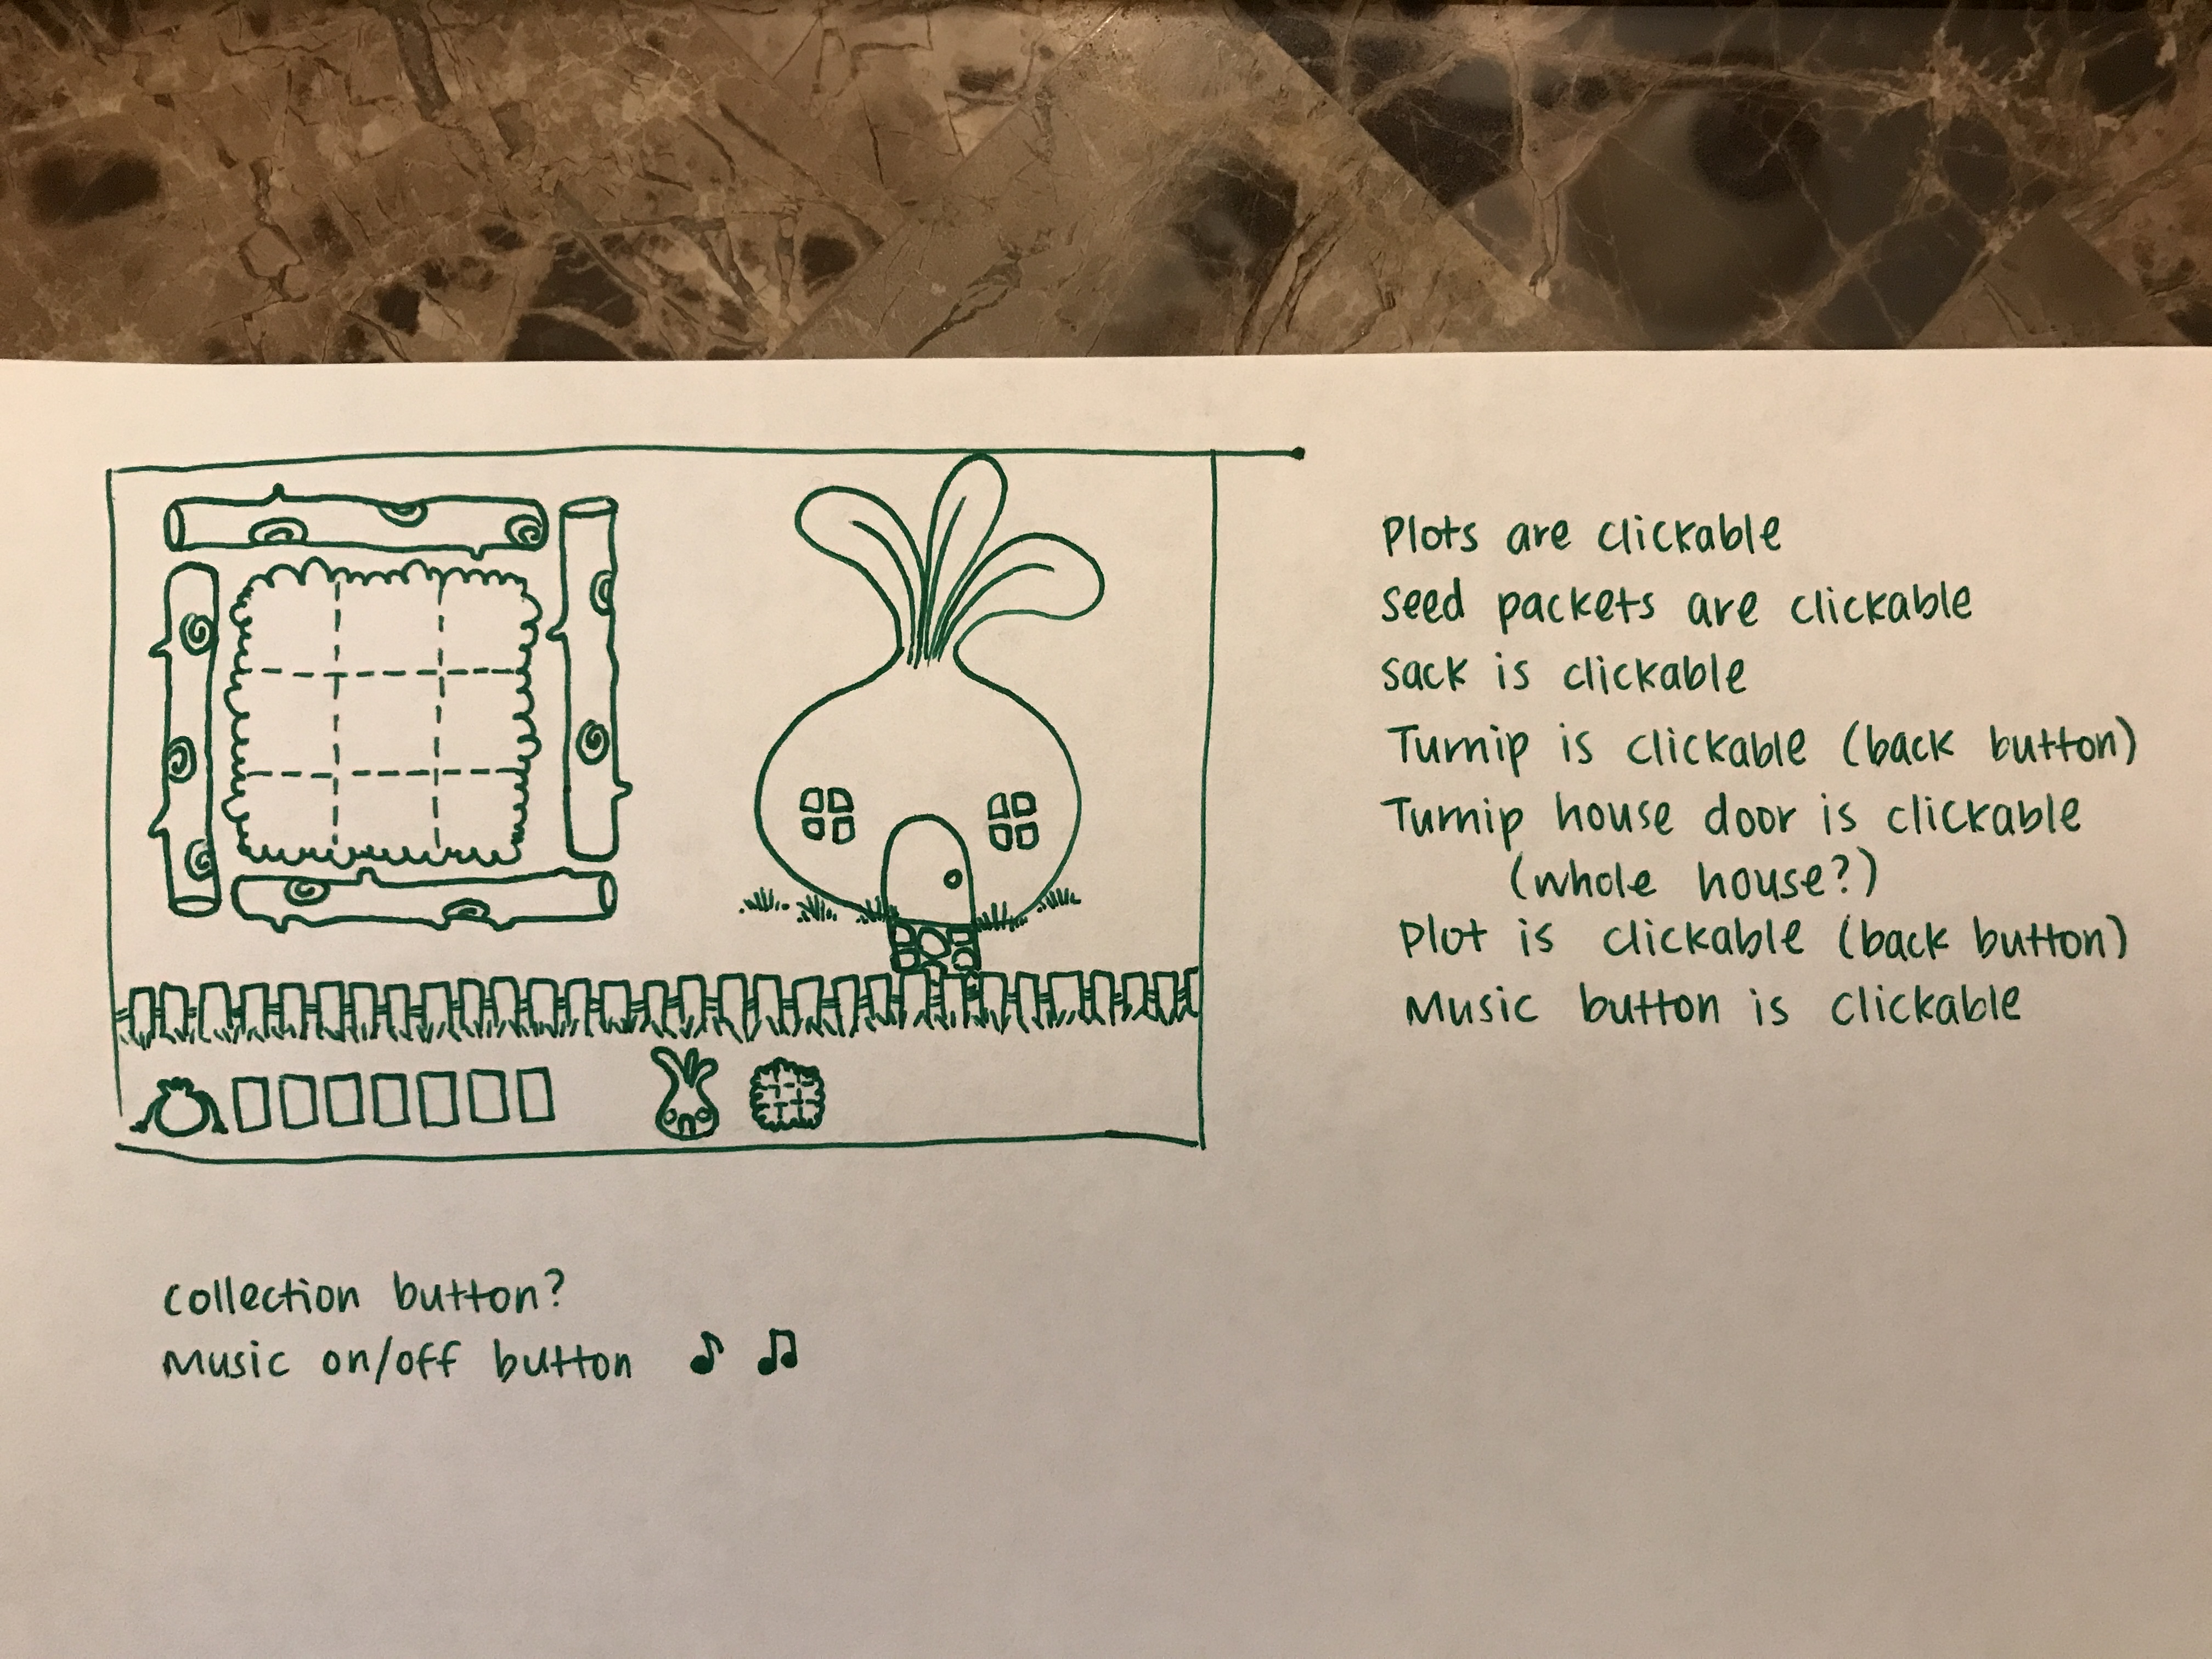 Plots are clickable
seed packets are clickable
sack is clickable
Turnip is clickable (back button)
Turnip house door is clickable
(whole house?)
Plot is clickable (back button)
Music button is clickable
collection button?
Music on/off button